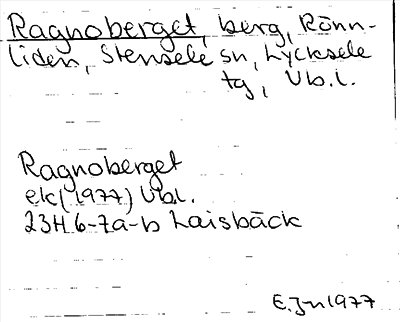 Ragnoberget, berg, Rönn-
liden, Stensele sn, Lycksele
tg, Vb.l.
Ragnoberget
ek (1977) Vb.l.
23H 6-7a-b Laisbäck
E.Jn 1977